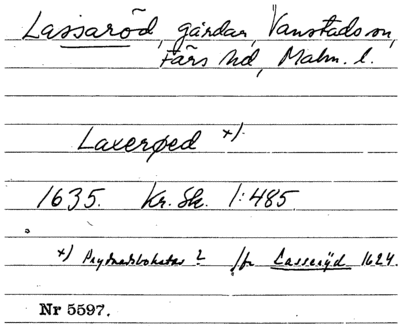 Lassaröd, gårdar, Vanstads sn,
Färs hd, Malm. l.
Laxerøed +)
1635. Kr. Sk. 1:485
+) ? jfr Lasserÿd 1624.
Nr 5597.